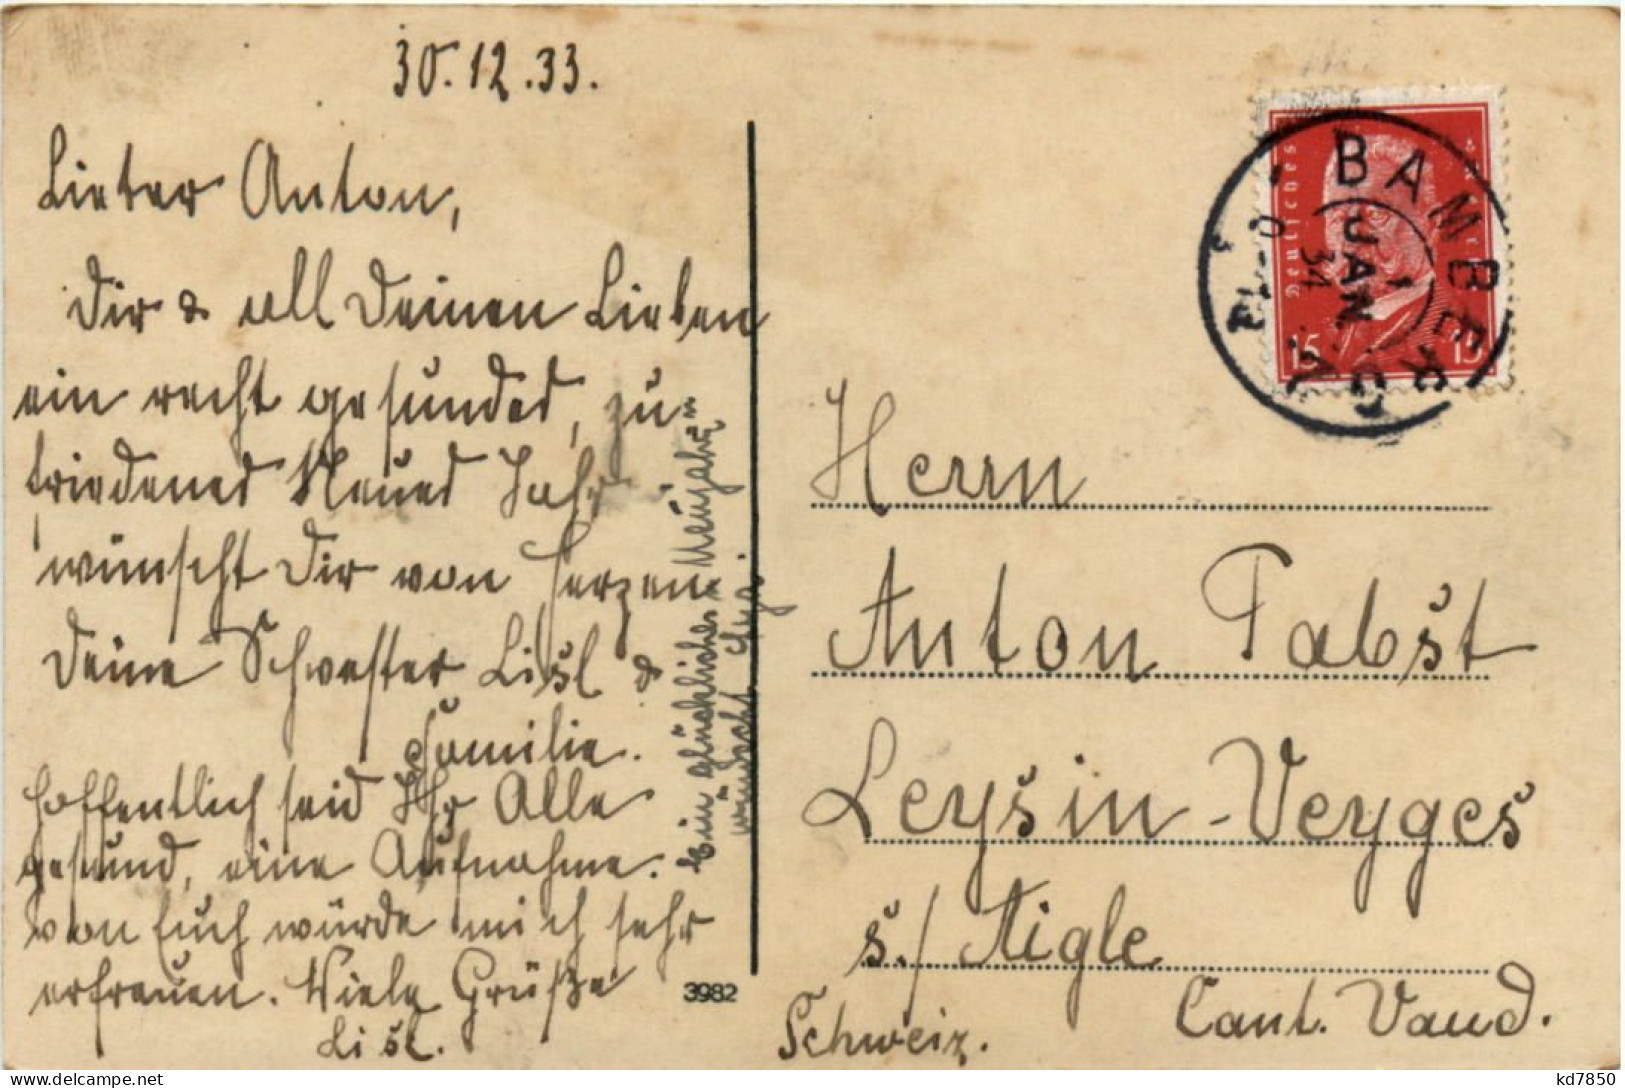 30.12.33.
Lieber Anton,
Dir & all Deinen Lieben
ein recht gesundes, zu-
friedenes Neues Jahr
wünscht Dir von Herzen
Deine Schwester Lisl &
Familie.
Hoffentlich seid Ihr Alle
gesund, eine Aufnahme
von Euch würde mich sehr
erfreuen. Viele Grüße
Lisl.
Ein glückliches Neujahr
wünscht
3982
Deutsches
15 15
BAMBERG
1 JAN
34
Herrn
Anton Pabst
Leysin-Veyges
s./ Aigle
Cant. Vaud.
Schweiz.
kd7850